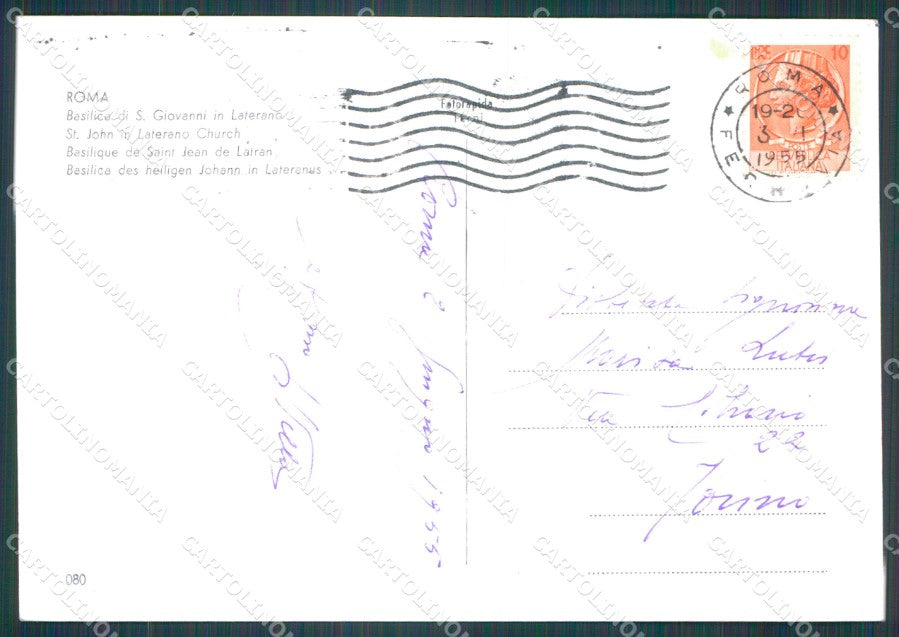 ROMA
Basilica di S. Giovanni in Laterano
St. John in Laterano Church
Basilique de Saint Jean de Latran
Basilica des heiligen Johann in Lateranus
Fotorapida
Terni
10
ROMA
19-20
3 1
1955
ITALIANA
FERROVIA
Roma 2 1955
Signorina
Marisa
Via
22
Torino
080
CARTOLINOMANIA